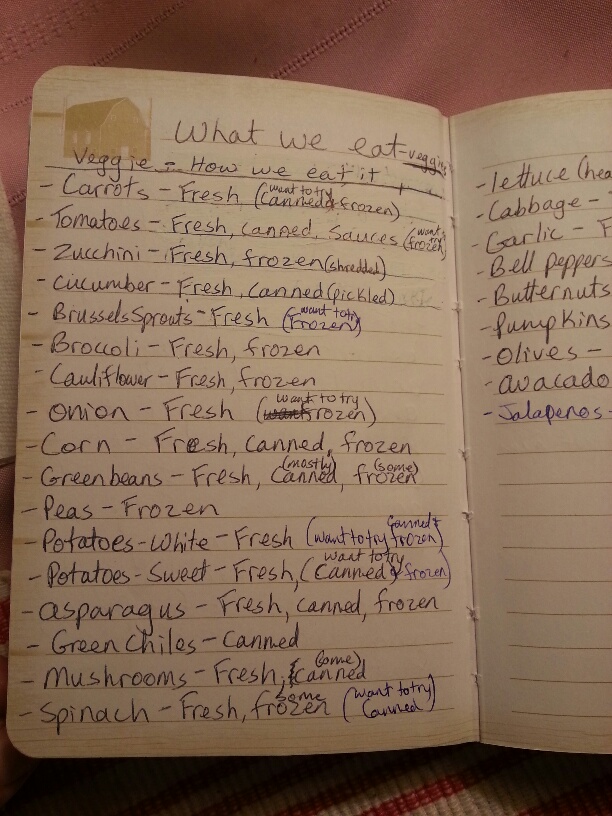 What we eat-veggies
Veggie - How we eat it
- Carrots - Fresh (want to try canned & frozen)
- Tomatoes - Fresh, canned, sauces (want frozen)
- Zucchini - Fresh, frozen (shredded)
- Cucumber - Fresh, canned (pickled)
- Brussels Sprouts - Fresh (want to try frozen)
- Broccoli - Fresh, frozen
- Cauliflower - Fresh, frozen
- Onion - Fresh (want to try frozen)
- Corn - Fresh, canned, frozen
- Greenbeans - Fresh, canned (mostly), frozen (some)
- Peas - Frozen
- Potatoes-White - Fresh (want to try canned & frozen)
- Potatoes-Sweet - Fresh, (want to try canned & frozen)
- asparagus - Fresh, canned, frozen
- Green Chiles - Canned
- Mushrooms - Fresh, (some) canned
- Spinach - Fresh, some frozen (want to try canned)
- lettuce (hea
- Cabbage -
- Garlic - F
- Bell peppers
- Butternuts
- Pumpkins
- Olives -
- avacado
- Jalapenos -